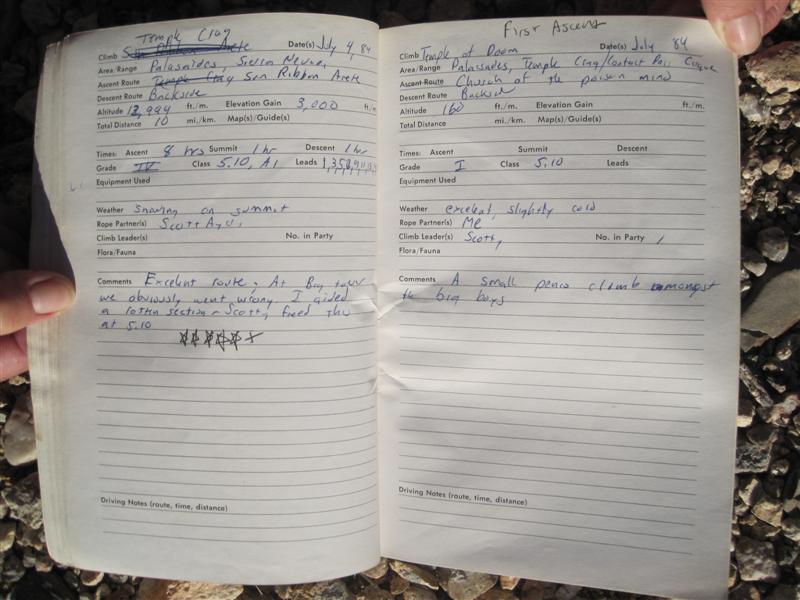 Temple Crag
Climb Sun Ribbon Arete Date(s) July 4, 84
Area/Range Palasaides, Sierra Nevada
Ascent Route Temple Crag Sun Ribbon Arete
Descent Route Backside
Altitude 12,999 ft./m. Elevation Gain 3,000 ft./m.
Total Distance 10 mi./km. Map(s)/Guide(s)
Times: Ascent 8 hrs Summit 1hr Descent 1hr
Grade IV Class 5.10, A1 Leads 1,3,5,8,9,11
Equipment Used
Weather Snowing on summit
Rope Partner(s) Scott
Climb Leader(s) No. in Party
Flora/Fauna
Comments Excelent route. At Big towr
we obviously went wrong. I aided
a rotten section - Scotty freed this
at 5.10
Driving Notes (route, time, distance)
First Ascent
Climb Temple of Doom Date(s) July 84
Area/Range Palasades, Temple Crag/Contact Pass Cirque
Ascent Route Church of the poison mind
Descent Route Backside
Altitude 160 ft./m. Elevation Gain ft./m.
Total Distance mi./km. Map(s)/Guide(s)
Times: Ascent Summit Descent
Grade I Class 5.10 Leads
Equipment Used
Weather excelent, slightly cold
Rope Partner(s) Me
Climb Leader(s) Scotty No. in Party 1
Flora/Fauna
Comments A small climb amongst
the big boys
Driving Notes (route, time, distance)